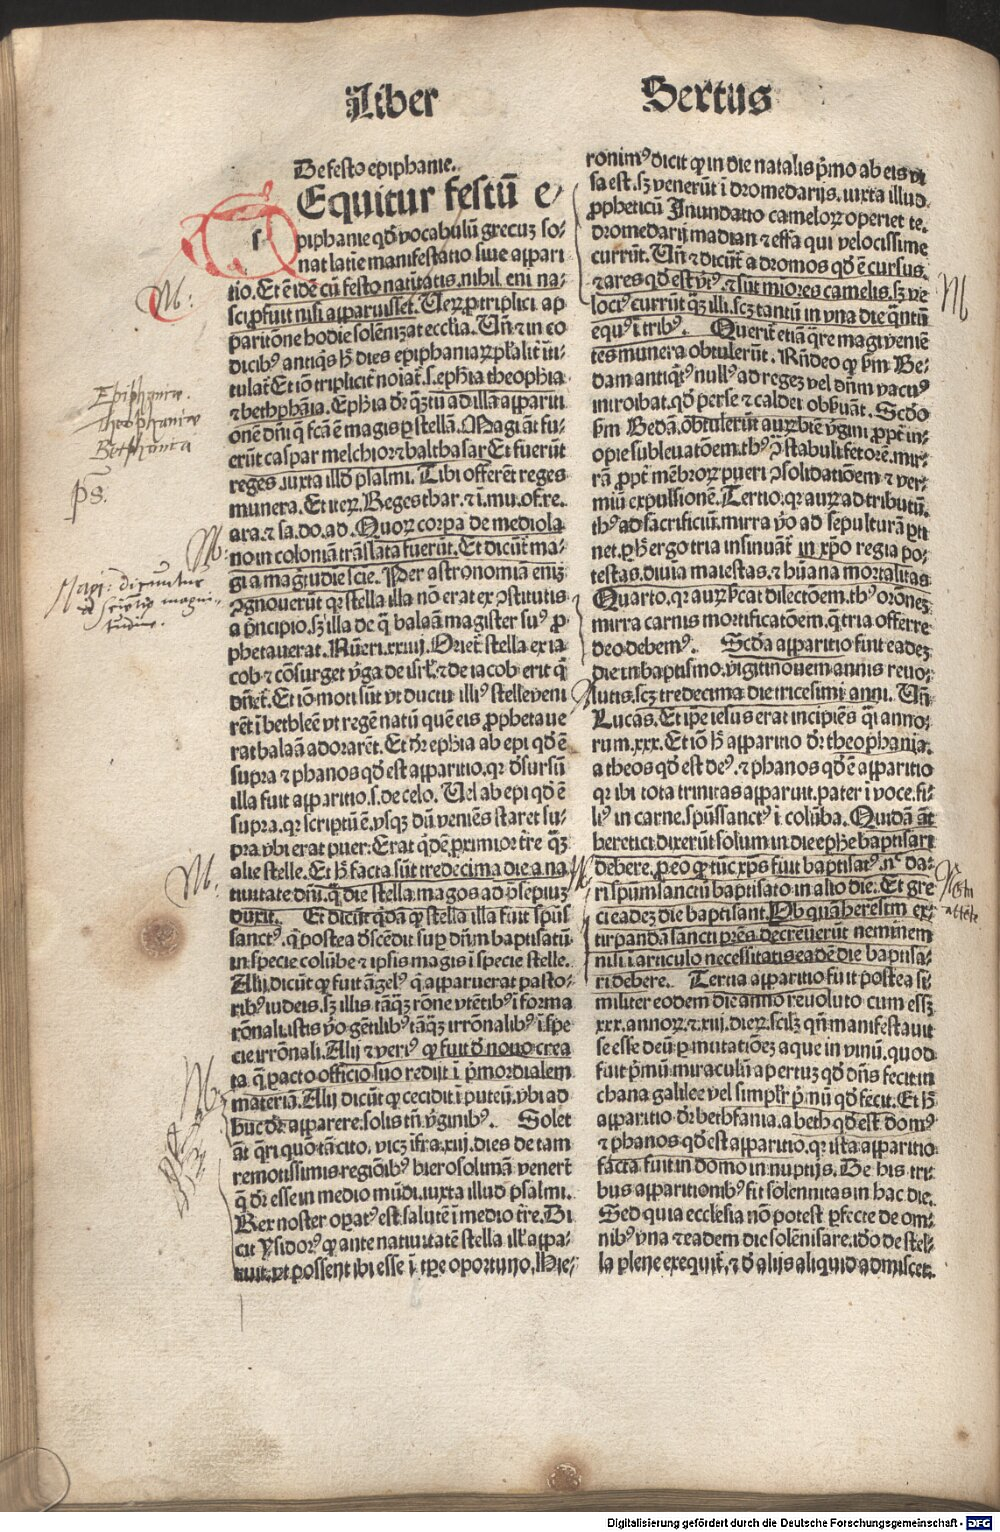 Liber Sextus
De festo epiphanie.
Equitur festū e⸗
piphanie qđ vocabulū grecuꝫ so⸗
nat latīe manifestatio siue appari
tio. Et ē idē cū festo natiuitatis. nihil eni na⸗
sci ꝓfuit nisi apparuisset. Ueꝝ ꝓ triplici ap
paritōne hodie solēnizat eccĺia. Uñ ⁊ in co
dicibꝰ antiq̄s
tulat̄ Et iō triplicit̄ noīat̄.s.epħia theophia
⁊ bethphāia. Epħia dr̄ q̄ꝫtū ad illā appariti
onē dn̄i q̄ fcā ē magis ꝑ stellā. Magi āt fu⸗
erūt caspar melchior ⁊ balthasar Et fuerūt
reges.iuxta illđ psalmi. Tibi offerēt reges
munera. Et iteꝝ. Reges thar.⁊ i.mu.of.re.
ara.⁊ sa.do.ad. Quoꝝ corpa de mediola
no in coloniā trāslata fuerūt. Et dicūt̄ ma⸗
gi a magr̄tudīe sciē. Per astronomiā eniꝫ
ꝯgnouerūt qꝛ stella illa nō erat ex ꝯstitutis
a p̄ncipio.sꝫ illa de q̄ balaā magister suꝰ ꝓ
phetauerat. Nūeri.xxiiij. Oriet̄ stella ex ia⸗
cob ⁊ cōsurget ꝟga de isrĺ.⁊ de iacob erit q̄
dn̄et̄. Et iō moti sūt vt ductu illiꝰ stelle veni
rēt ī bethleē vt regē natū quē eis ꝓphetaue
rat balaā adorarēt. Et dr̄ epħia ab epi qđ ē
supra ⁊ phanos qđ est apparitio.qꝛ đsursū
illa fuit apparitio.s.de celo. Uel ab epi qđ ē
supra.qꝛ scriptū ē.vsqꝫ dū veniēs staret su⸗
pra vbi erat puer. Erat q̄dē ꝓximior tr̄e q̄ꝫ
alie stelle. Et ħ facta sūt tredecima die a na
tiuitate dn̄i.q̄ die stella magos ad p̄sepiuꝫ
duxit. Et dicūt q̄dā ꝙ stella illa fuit spūs
sanctꝰ.q̄ postea đscēdit suꝑ dn̄m baptisatū
in specie colūbe ⁊ ipsis magis ī specie stelle.
Alij dicūt ꝙ fuit āgelꝰ q̄ apparuerat pasto⸗
ribꝰ iudeis.sꝫ illis tāq̄ꝫ rōne vtētibꝰ ī forma
rōnali.istis ꝟo gētilibꝰ tāq̄ꝫ irrōnalibꝰ ī spe
cie irrōnali. Alij ⁊ veriꝰ ꝙ fuit đ nouo crea
ta q̄ ꝑacto officio suo redijt ī p̄mordialem
materiā. Alij dicūt ꝙ cecidit ī puteū.vbi ad
huc dr̄ apparere.solis tn̄ ꝟginibꝰ. Solet
āt q̄ri quo tā cito.vicꝫ īfra.xiij.dies de tam
remotissimis regiōibꝰ hierosolimā venert̄
q̄ dr̄ esse in medio mūdi.iuxta illud psalmi.
Rex noster oꝑatꝰ est salutē ī medio tr̄e. Di
cit Ysidorꝰ ꝙ ante natiuitatē stella illꝭ appa
ruit.vt possent ibi esse ī tꝑe oportuno. Hie⸗
ronimꝰ dicit ꝙ in die natalis p̄mo ab eis vi
sa est.sꝫ venerūt ī dromedarijs.iuxta illud
ꝓpheticū Inundatio cameloꝝ operiet te.
dromedarij madian ⁊ effa qui velocissime
currūt. Uñ ⁊ dicūt̄ a dromos qđ ē cursus.
⁊ ares qđ est ꝟtꝰ.⁊ sūt miores camelis.sꝫ ve
lociꝰ currūt q̄ꝫ illi.scꝫ tantū in vna die q̄ntū
equꝰ ī tribꝰ. Querit̄ etiā q̄re magi veniē
tes munera obtulerūt. Rñdeo ꝙ ẜm Be⸗
dam antiq̄tꝰ nullꝰ ad regeꝫ vel dn̄m vacuꝰ
introibat.qđ perse ⁊ caldei obẜuāt. Scđo
ẜm Bedā.obtulerūt auꝝ btē ꝟgini ꝓpt̄ in⸗
opie subleuatōem.thꝰ ꝯ stabuli fetorē.mir⸗
rā ꝓpt̄ mēbroꝝ pueri ꝯsolidatiōem ⁊ ver⸗
miū expulsionē. Tertio.qꝛ auꝝ ad tributū.
thꝰ ad sacrificiū.mirra ꝟo ad sepulturā ꝑti
net.ꝑ ħ ergo tria insinuāt̄ in xp̄o regia po⸗
testas.diuīa maiestas.⁊ hūana mortalitas
Quarto.qꝛ auꝝ sͥgnificat dilectōem.thꝰ orōneꝫ
mirra carnis mortificatōem.q̄ tria offerre
deo debemꝰ. Scđa apparitio fuit eadeꝫ
die in baptismo.vigitinouem annis reuo⸗
lutis.scꝫ tredecima die tricesimi anni. Uñ
Lucas. Et ip̄e iesus erat incipiēs q̄si anno⸗
rum.xxx. Et iō ħ apparitio dr̄ theophania.
a theos qđ est deꝰ.⁊ phanos qđ ē apparitio
qꝛ ibi tota trinitas apparuit.pater ī voce.fi⸗
liꝰ in carne.spūssanctꝰ ī colūba. Quidā āt
heretici dixerūt solum in die epħie baptisari
debere.ꝓ eo ꝙ tūc xp̄s fuit baptisatꝰ.nͨ da⸗
ri spūmsanctū baptisato in alio die. Et gre
ci eadeꝫ die baptisant. Ob quā heresim ex⸗
tirpandā sancti pr̄es decreuerūt neminem
nisi ī articulo necessitatis eadē die baptisa⸗
ri debere. Tertia apparitio fuit postea si
militer eodem die anno reuoluto cum esseꝫ
xxx.annoꝝ.⁊ xiij.dieꝝ.scilꝫ qn̄ manifestauit
se esse deū ꝑ mutatiōeꝫ aque in vinū.quod
fuit p̄mū miraculū apertuꝫ qđ dn̄s fecit in
chana galilee vel simplr̄ p̄mū qđ fecit. Et ħ
apparitio dr̄ bethfania.a beth qđ est domꝰ
⁊ phanos qđ est apparitio.qꝛ ista apparitio
facta fuit in domo in nuptijs. De his tri
bus apparitionibꝰ fit solennitas in hac die.
Sed quia ecclesia nō potest ꝑfecte de om⸗
nibꝰ vna ⁊ eadem die solēnisare.idō de stel⸗
la plene exequit̄.⁊ đ alijs aliquid admiscet.
Epiphaniæ.
Theophaniæ
Bethphania
ps.
Magi: dicuntur
magni⸗
tudine.
Digitalisierung gefördert durch die Deutsche Forschungsgemeinschaft - DFG